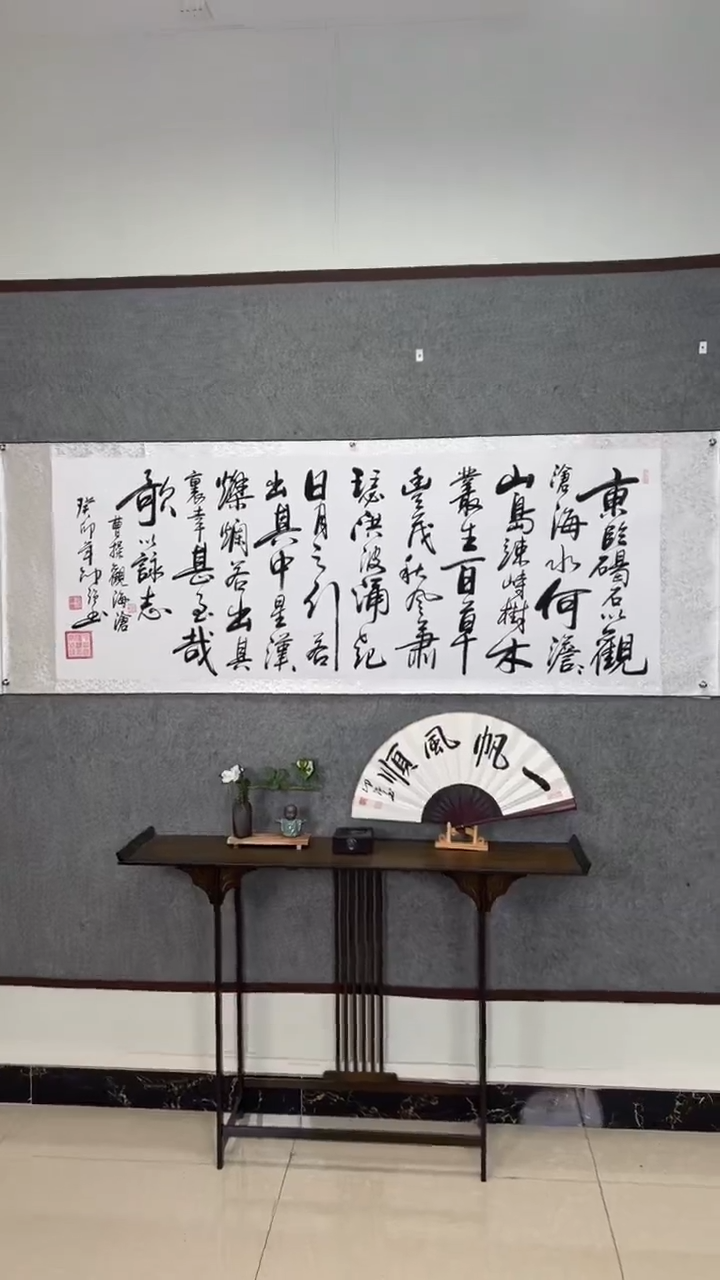 東臨碣石以觀
滄海水何澹澹
山島竦峙樹木
叢生百草
豐茂秋風蕭
瑟洪波涌起
日月之行若
出其中星漢
燦爛若出其
裏幸甚至哉
歌以詠志
曹操觀海滄
癸卯年
書
一帆風順